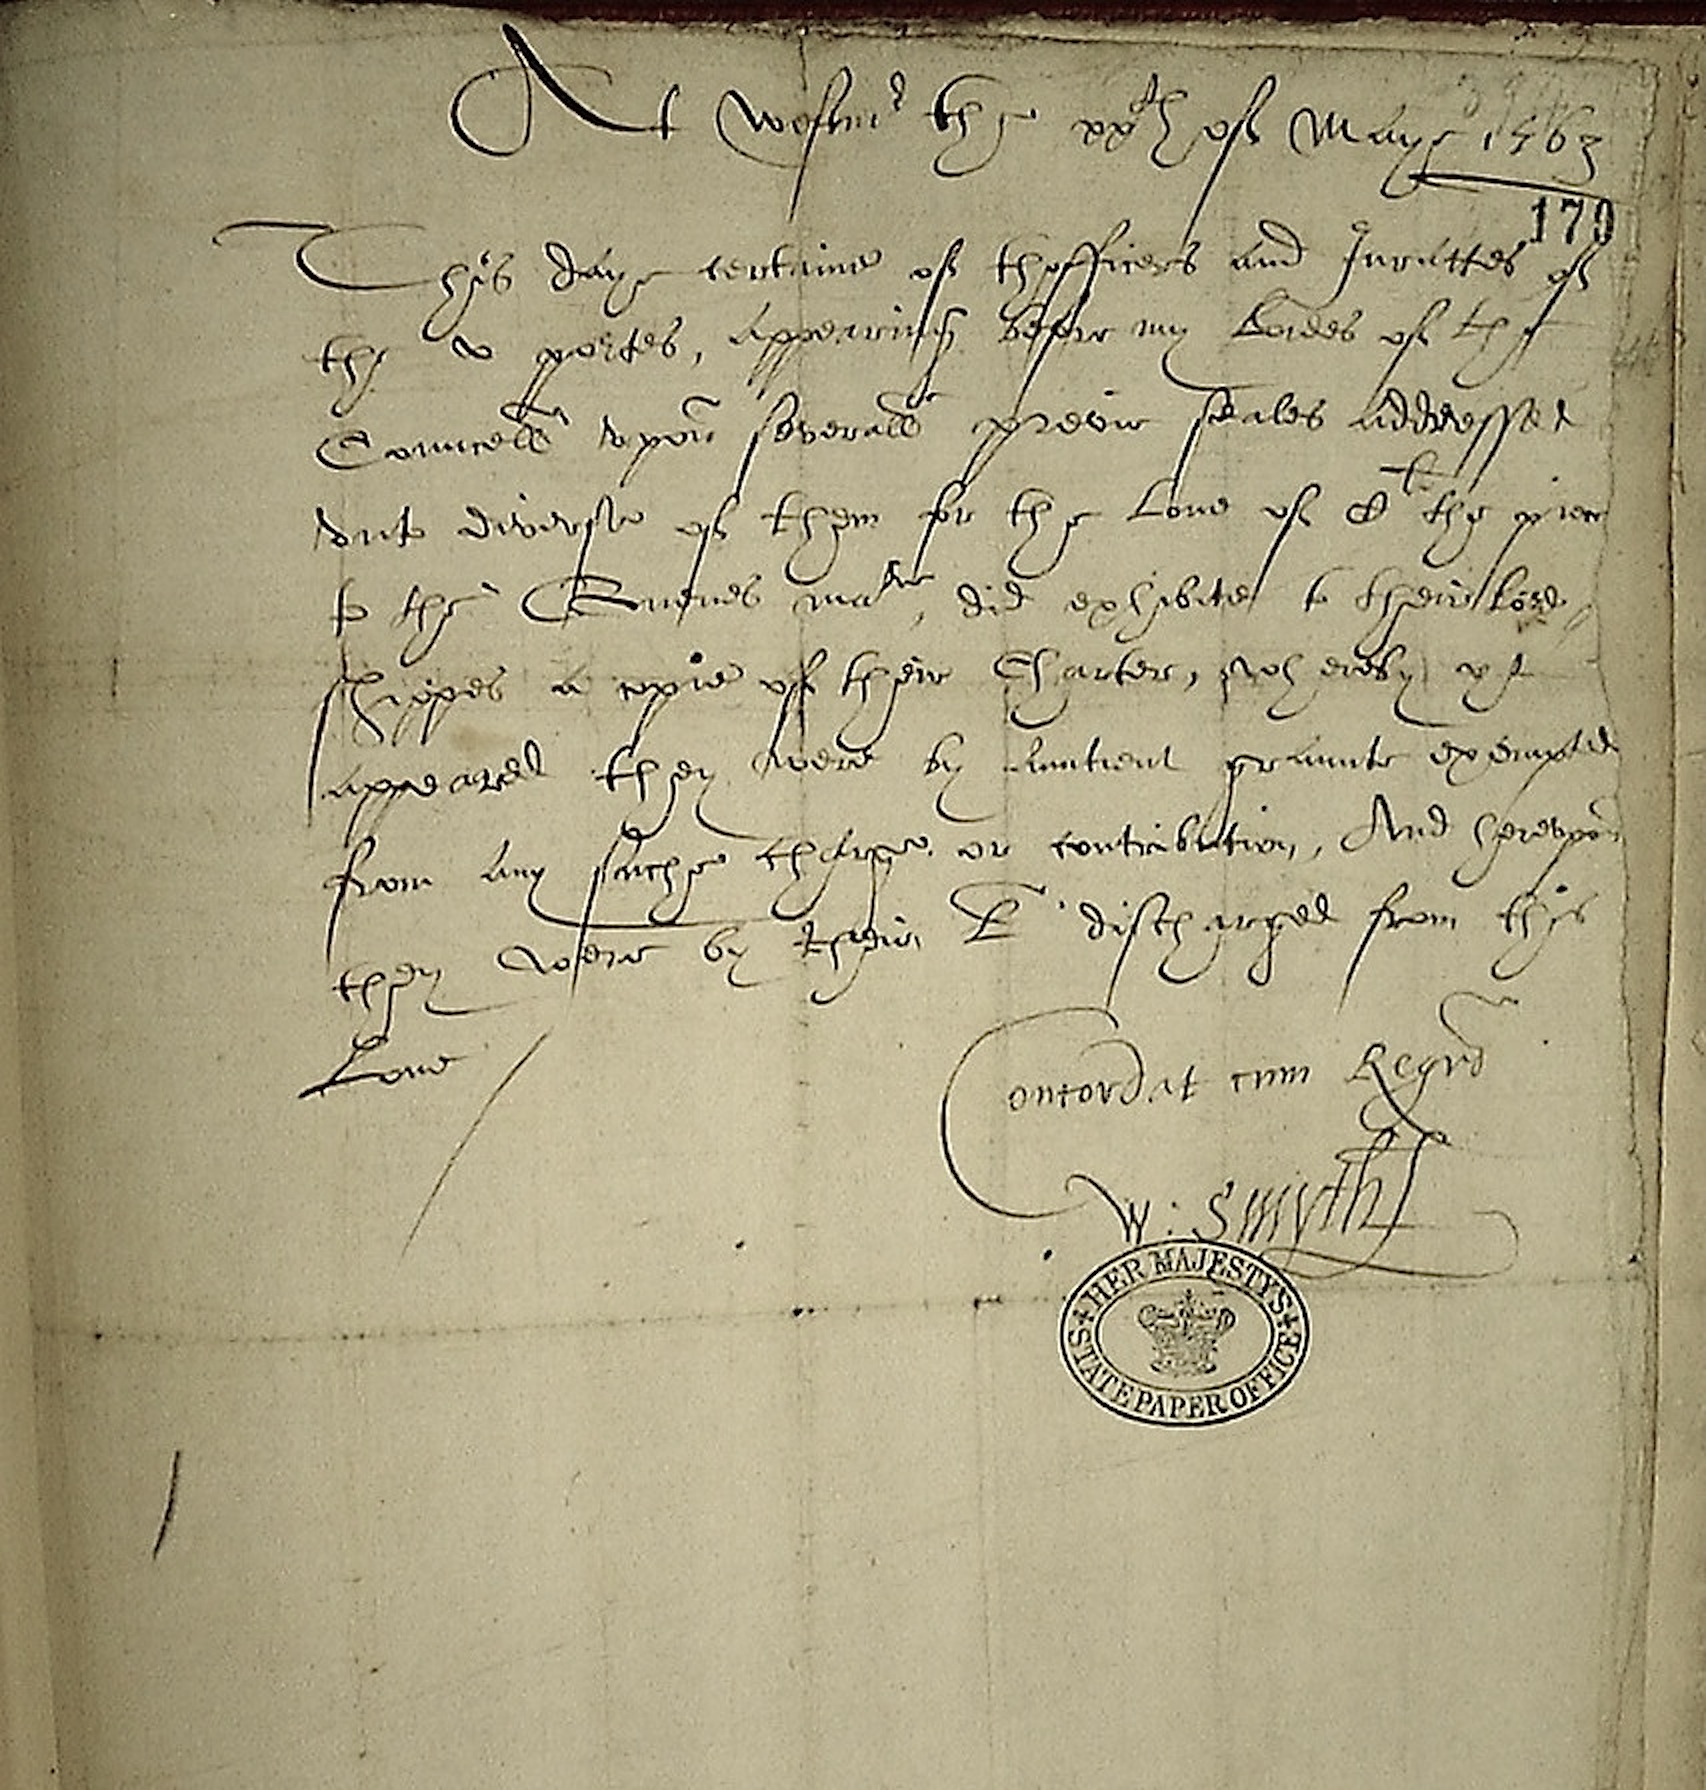 At Westmr the xxth of Maye 1563
179
This daye certaine of thofficers and Jurattes of
the v portes, appearing before my Lordes of the
Councell vpon severall previe seales addressed
vnto diverse of them for the Lone of the piece
to the Quenes matie, did exhibite to their Lord
shippes a copie of their Charter, wherby yt
appeared they were by auntient graunte exempted
from any suche charge or contribution, And herevpon
they were by their L discharged from this
Lone
Concordat cum Regro
W: Smyth
HER MAJESTYS
STATE PAPER OFFICE